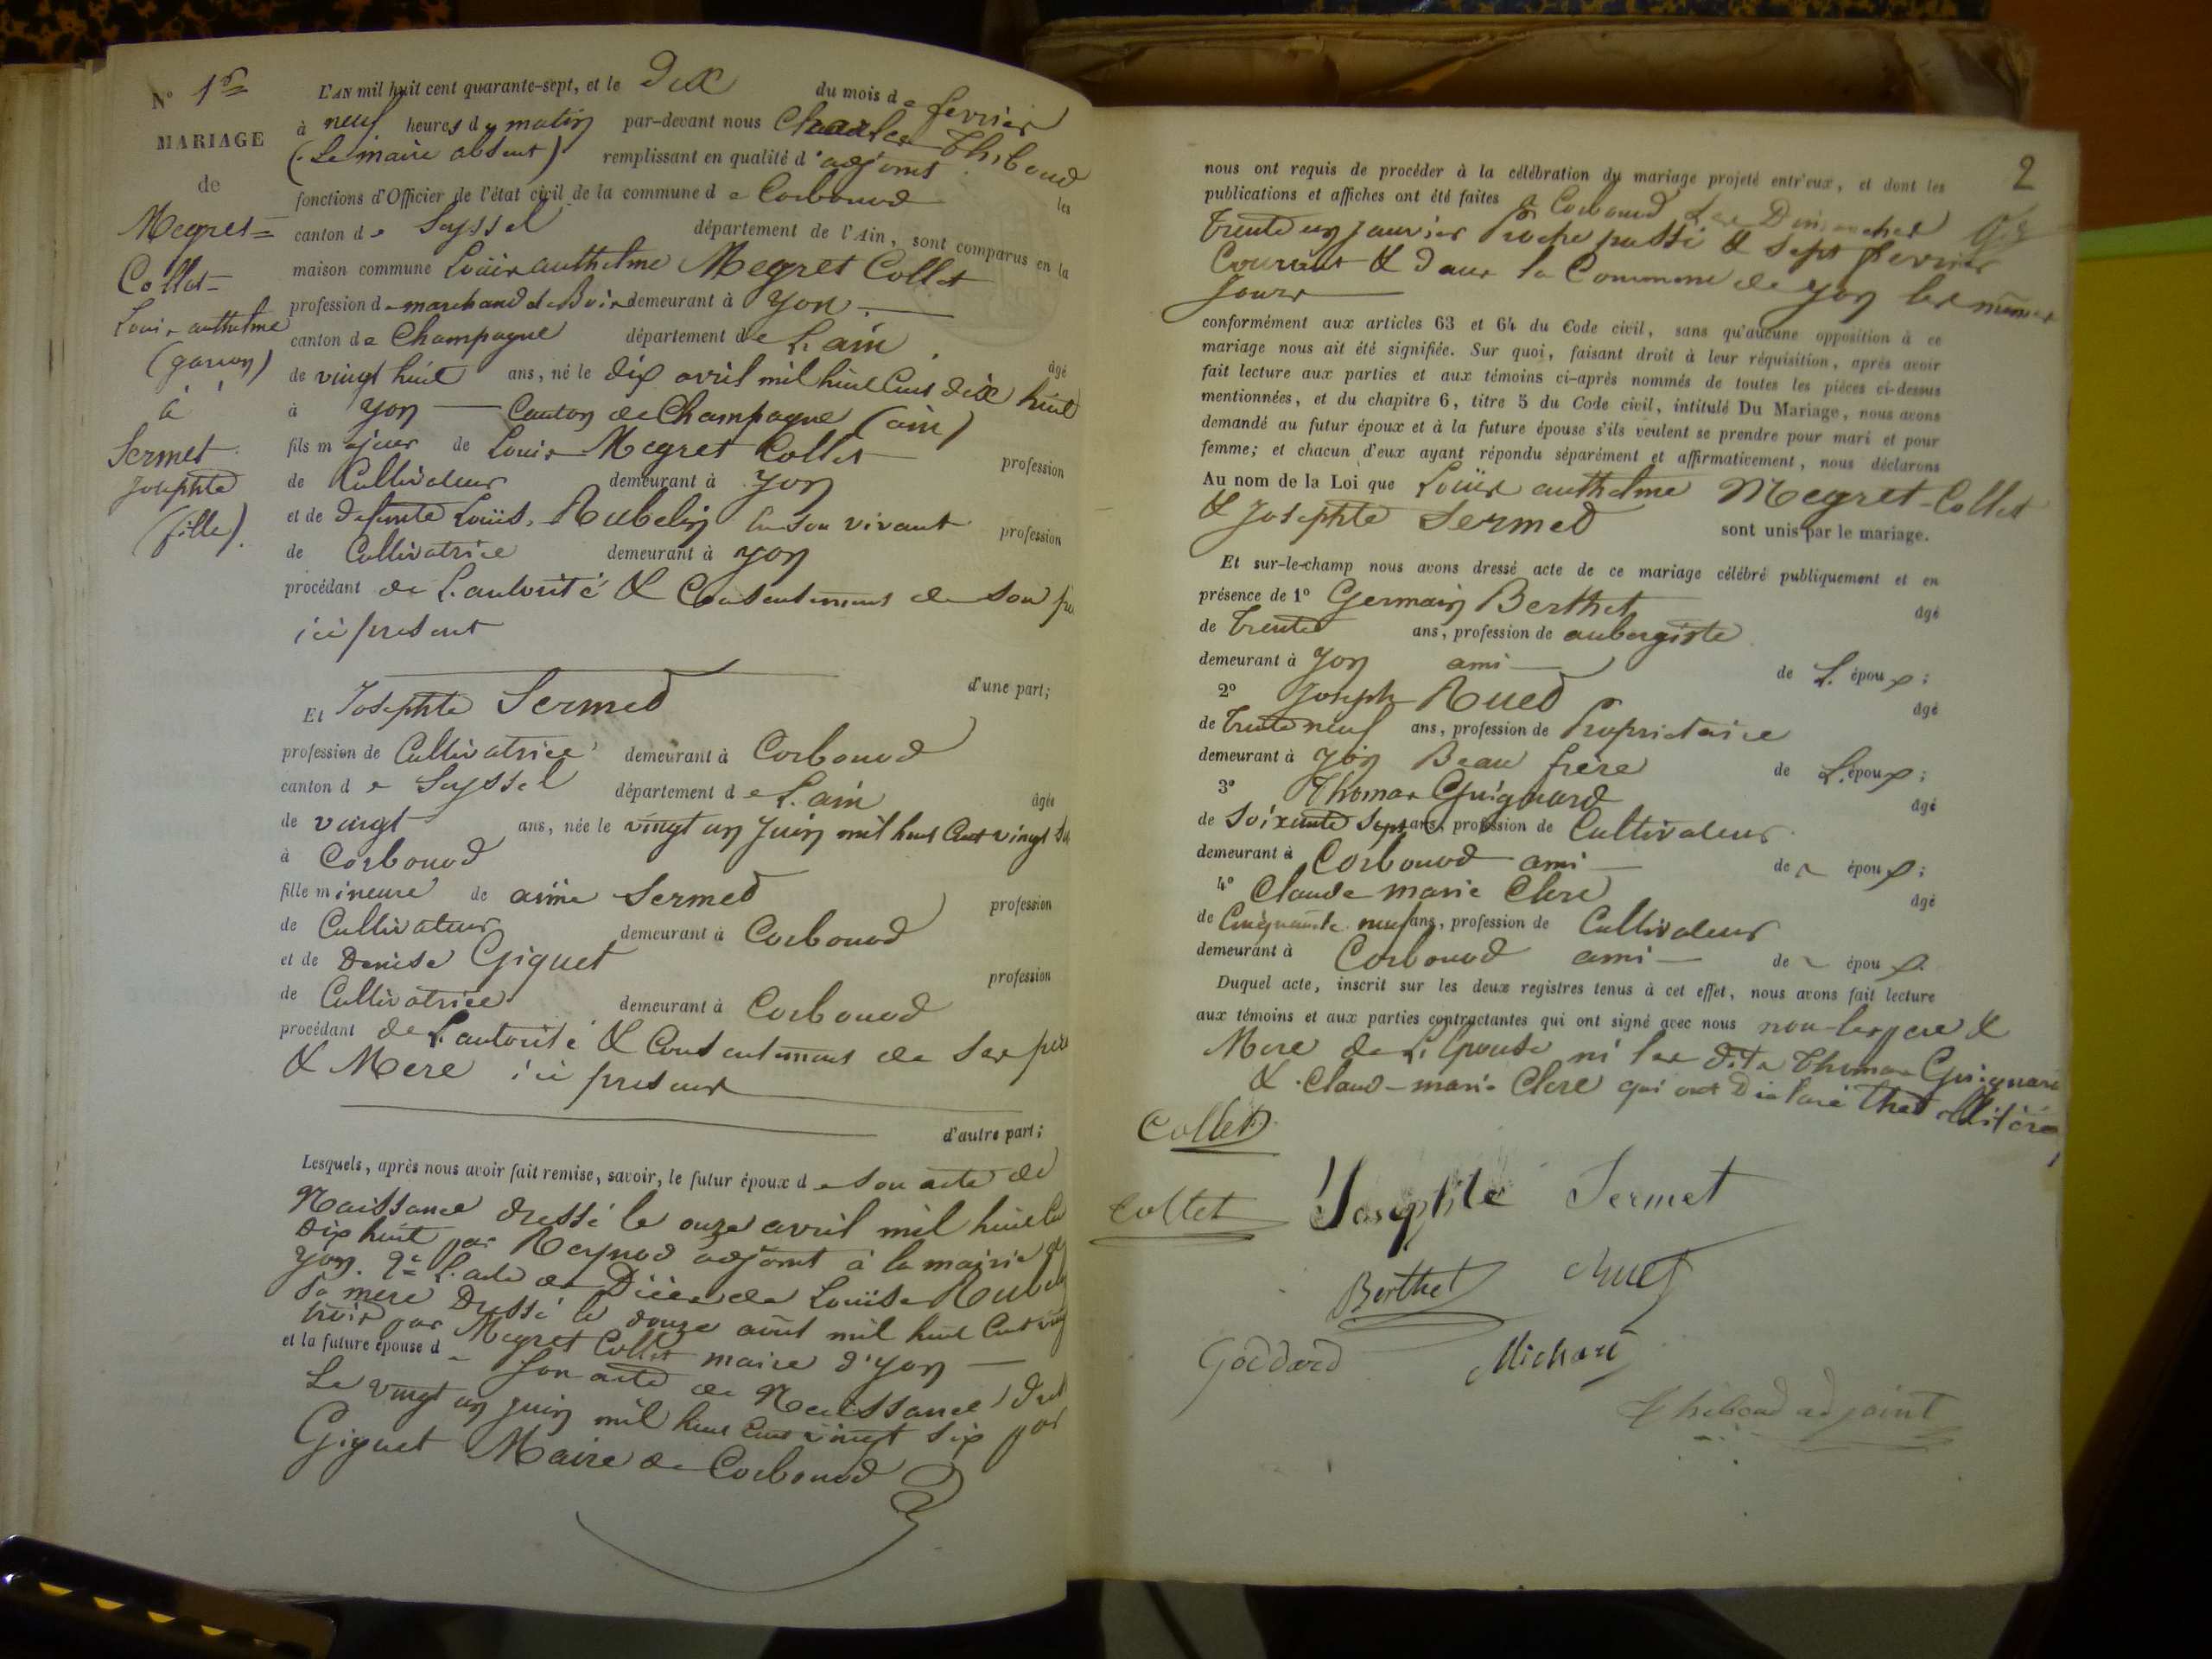 N° 1er
MARIAGE
de
Megret=
Collet=
Louis anthelme
(garçon)
à
Sermet
Josephte
(fille).
L'AN mil huit cent quarante-sept, et le Dix du mois de fevrier
à neuf heures du matin par-devant nous Charles Thiboud
(Le maire absent) remplissant en qualité d'adjoint les
fonctions d'Officier de l'état civil de la commune de Corbonod
canton de Seyssel département de l'Ain, sont comparus en la
maison commune Louis anthelme Megret Collet
profession de marchand de Bois demeurant à yon
canton de Champagne département de L'ain âgé
de vingt huit ans, né le dix avril mil huit Cent dix huit
à yon Canton de Champagne (ain)
fils majeur de Louis Megret Collet profession
de Cultivateur demeurant à yon
et de defunte Louise Rubelin en son vivant profession
de Cultivatrice demeurant à yon
procédant de L'autorité & Consentement de son
ici présent
d'une part;
Et Josephte Sermet
profession de Cultivatrice demeurant à Corbonod
canton de Seyssel département de L'ain âgée
de vingt ans, née le vingt un Juin mil huit Cent vingt
à Corbonod
fille mineure de aimé Sermet profession
de Cultivateur demeurant à Corbonod
et de Denise Giguet profession
de Cultivatrice demeurant à Corbonod
procédant de L'autorité & Consentement de ses
& Mere ici present
d'autre part;
Lesquels, après nous avoir fait remise, savoir, le futur époux de son acte de
Naissance dressé le onze avril mil huit
dix huit par Reynod adjoint à la mairie
yon. 2° L'acte de Décès de Louise
Sa mere Dressé le douze août mil huit Cent
trois par Megret Collet maire d'yon
et la future épouse d son acte de Naissance
Le vingt un juin mil huit Cent vingt six par
Giguet Maire de Corbonod
2
nous ont requis de procéder à la célébration du mariage projeté entr'eux, et dont les
publications et affiches ont été faites à Corbonod Les Dimanches
trente un janvier proche passé & sept fevrier
Courant & dans la Commune de yon les mêmes
Jours
conformément aux articles 63 et 64 du Code civil, sans qu'aucune opposition à ce
mariage nous ait été signifiée. Sur quoi, faisant droit à leur réquisition, après avoir
fait lecture aux parties et aux témoins ci-après nommés de toutes les pièces ci-dessus
mentionnées, et du chapitre 6, titre 5 du Code civil, intitulé Du Mariage, nous avons
demandé au futur époux et à la future épouse s'ils veulent se prendre pour mari et pour
femme; et chacun d'eux ayant répondu séparément et affirmativement, nous déclarons
Au nom de la Loi que Louis anthelme Megret-Collet
& Josephte Sermet sont unis par le mariage.
Et sur-le-champ nous avons dressé acte de ce mariage célébré publiquement et en
présence de 1° Germain Berthet âgé
de trente ans, profession de aubergiste
demeurant à yon ami de L'époux;
2° Joseph Ruet âgé
de trente neuf ans, profession de Proprietaire
demeurant à yon Beau frère de L'époux;
3° Thomas Guignard âgé
de Soixante Sept ans, profession de Cultivateur
demeurant à Corbonod ami de époux;
4° Claude marie Clerc âgé
de Cinquante neuf ans, profession de Cultivateur
demeurant à Corbonod ami de époux
Duquel acte, inscrit sur les deux registres tenus à cet effet, nous avons fait lecture
aux témoins et aux parties contractantes qui ont signé avec nous non les pere &
Mere de L'épouse ni les dits Thomas Guignard
& Claud-marie Clerc qui ont Déclaré
Collet
Collet Josephte Sermet
Berthet Ruet
Goddard Michaud
Thiboud adjoint